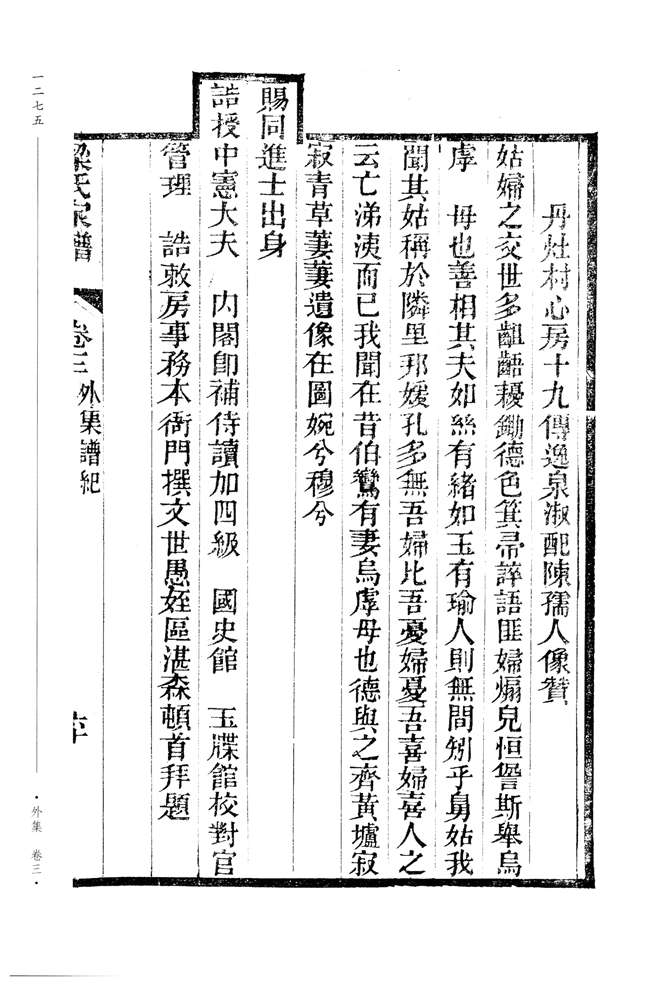 丹灶村心房十九傳逸泉淑配陳孺人像贊
姑婦之交世多齟齬耰鋤德色箕帚誶語匪婦煽兒恒訾斯舉烏
虖 毋也善相其夫如絲有緒如玉有瑜人則無間矧乎舅姑我
聞其姑稱於隣里邦媛孔多無吾婦比吾憂婦憂吾喜婦喜人之
云亡涕洟而已我聞在昔伯鸞有妻烏虖毋也德與之齊黃壚寂
寂青草萋萋遺像在圖婉兮穆兮
賜同進士出身
誥授中憲大夫 內閣即補侍讀加四級 國史館 玉牒館校對官
管理 誥敕房事務本衙門撰文世愚姪區湛森頓首拜題
梁氏家譜 卷三 外集譜紀
一二七五
·外集 卷三·